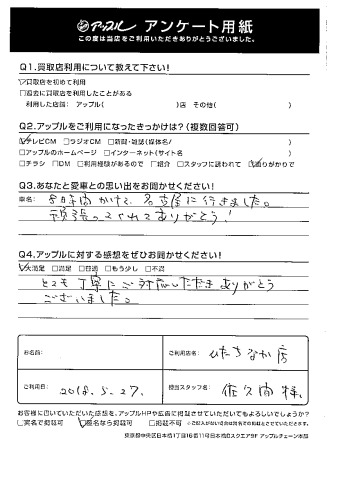 アップル アンケート用紙
この度は当店をご利用いただきありがとうございました。
Q1.買取店利用について教えて下さい!
☑買取店を初めて利用
□過去に買取店を利用したことがある
利用した店舗: アップル( )店 その他( )
Q2.アップルをご利用になったきっかけは?(複数回答可)
☑テレビCM □ラジオCM □新聞・雑誌(媒体名/ )
□アップルのホームページ □インターネット(サイト名 )
□チラシ □DM □利用経験があるので □紹介 □スタッフに誘われて ☑通りがかりで
Q3.あなたと愛車との思い出をお聞かせください!
車名: 8時間かけて、名古屋に行きました。
頑張ってくれてありがとう!
Q4.アップルに対する感想をぜひお聞かせください!
☑大満足 □満足 □普通 □もう少し □不満
とても丁寧にご対応いただきありがとう
ございました。
お名前:
ご利用店名: ひたちなか店
ご利用日: 2018.5.27.
担当スタッフ名: 佐久間様.
お客様に書いていただいた感想を、アップルHPや広告に掲載させていただいてもよろしいでしょうか?
□実名で掲載可 ☑匿名なら掲載可 □掲載不可 ※ご記入がない場合は匿名での掲載とさせていただきます。
東京都中央区日本橋1丁目16番11号日本橋Dスクエア9F アップルチェーン本部